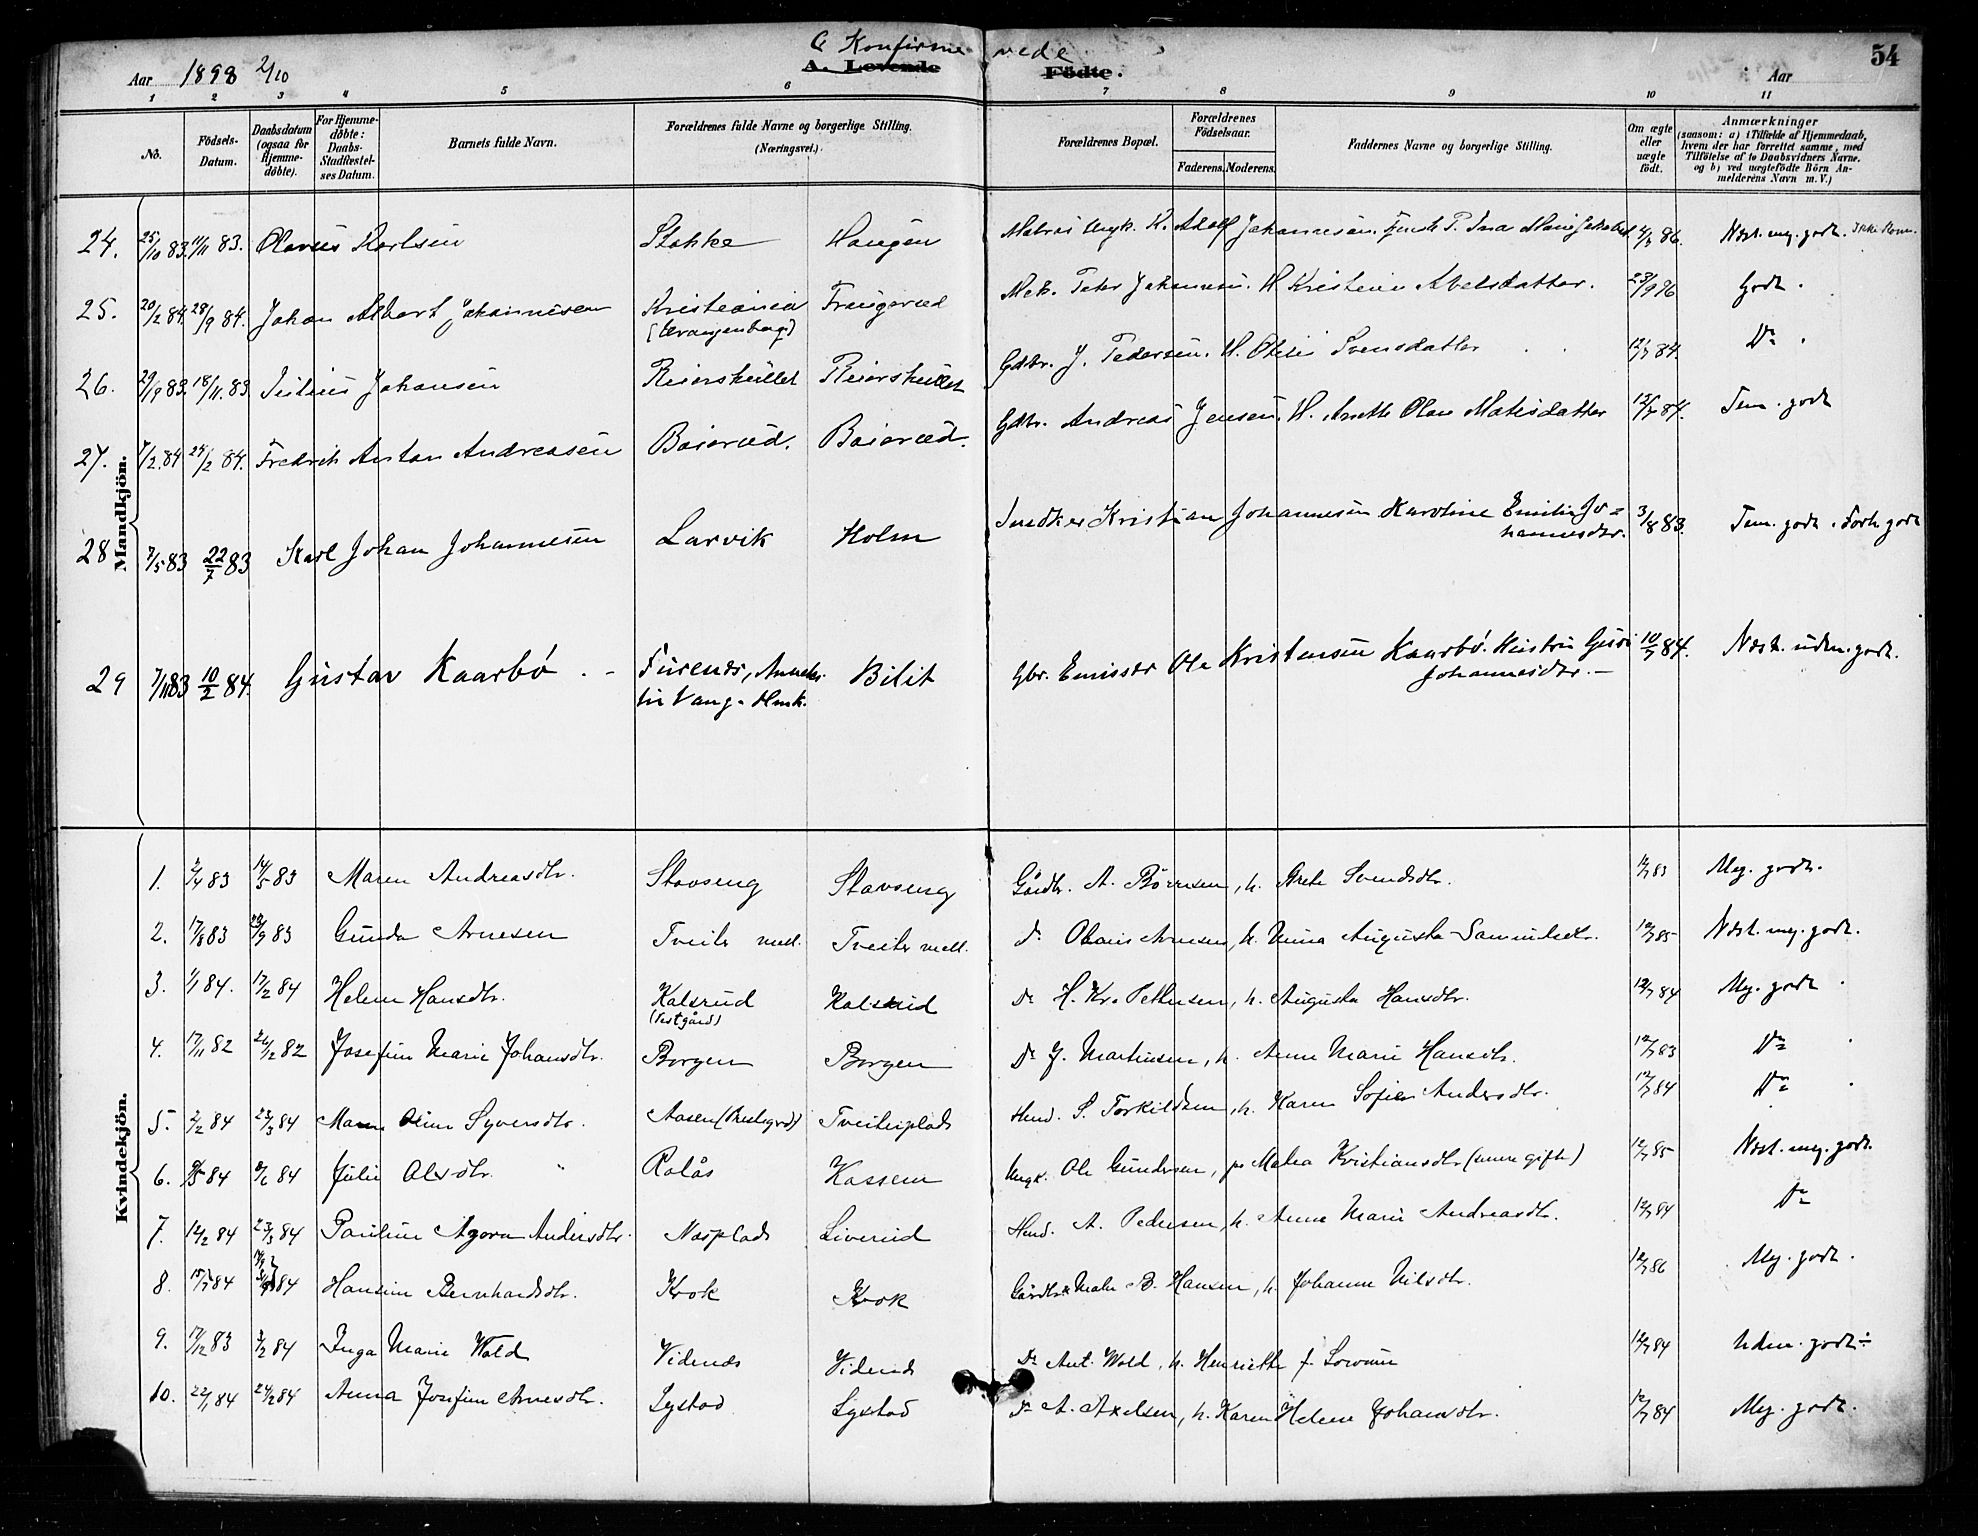 C Konfirmerede
54
Aar 1898 2/10
A. Levende Födte.
Aar
1 2 3 4 5 6 7 8 9 10 11
No.
Födsels-Datum.
Daabsdatum (ogsaa for Hjemme-döbte).
For Hjemme-döbte: Daabs-Stadfæstel-ses Datum.
Barnets fulde Navn.
Forældrenes fulde Navne og borgerlige Stilling.
(Næringsvei.)
Forældrenes Bopæl.
Forældrenes Födselsaar.
Faderens. Moderens.
Faddernes Navne og borgerlige Stilling.
Om ægte eller uægte födt.
Anmærkninger
(saasom: a) i Tilfælde af Hjemmedaab,
hvem der har forrettet samme, med
Tilföielse af to Daabsvidners Navne.
og b) ved uægtefödte Börn An-
melderens Navn m. V.)
Mandkjön.
24. 25/10 83. 11/11 83. Olavus Karlsen Stokke Haugen Matros Ungk. K. Adolf Johannesen. P. Ina Marie 86. Næst. meg. godt.
25. 20/2 84. 28/9 84. Johan Albert Johannesen Kristiania Fraugerød Mek. Peter Johannesen H Kristine Abelsdatter. 23/9 96 Godt.
26. 29/9 83. 18/11 83. Julius Johansen Reiershullet Reiershullet Gdbr. J. Pedersen. H. Svensdatter 12/7 84 Do
27. 7/2 84 24/2 84. Fredrik Anton Andreasen Boierød. Boierød. Gdbr. Andreas Jensen. H. Anette Olava Matisdatter 84. Tem. godt
28 7/5 83 22/7 83 Karl Johan Johannesen Larvik Holm Kristian Johannesen Karoline Emilie Jo-
hannesdtr. 3/8 83. Tem. godt.
29 7/11 83 10/2 84. Gustav Kaarbø Furenes, Anneks
til Vang. Hmk. Bilit Gbr. Emissær Ole Kristensen Kaarbø. Hustru Guri
Johannesdtr. 10/7 84. Næst. uden. godt.
Kvindekjön.
1. 3/4 83 14/5 83 Maren Andreasdtr. Stavseng Stavseng Gårdbr. A. Børresen, h. Grete Svendsdtr. 83 Meg. godt.
2. 17/8 83 83 Gunda Arnesen Tveiter med. Tveiter med. Do Arnesen, h. Anna Augusta Samuelsdtr. 12/7 85 Næst. meg. godt.
3. 1/1 84. 17/2 84 Helene Hansdtr. Kalsrud
(Vestgård) Kalsrud Do H. Kr. Pettersen, h. Augusta Hansdtr. 12/7 84 Meg. godt
4. 17/11 82 26/12 82 Josefine Marie Johansdtr. Borgen Borgen Do J. Martinsen, h. Anne Marie Hansdtr. 12/7 83 Do
5. 2/2 84 23/3 84 Maren Oline Syversdtr. Aasen (Prestegrd) Tveitenplads Husd. S. Torkildsen, h. Karen Sofie Andersdtr. 12/7 84 Do
6. 84 2/6 84 Julie Olsdtr. Raøås Kassem Ungk. Ole Gundersen, p. Malea Kristiansdtr (senere gift) 12/7 85 Næst. meg. godt.
7. 12/2 84 23/3 84 Pauline Agora Andersdtr. Nesplads Liverud Husd. A. Pedersen, h. Anne Marie Andreasdtr. 12/7 84 Do
8. 15/7 84 84 Hansine Bernhardsdtr. Krok Krok B. Hansen, h. Johanne Nilsdtr. 12/7 86 Meg. godt.
9. 17/12 83 3/2 84 Inga Marie Wold Videnes Videnes Do Ant. Wold, h. Henriette f. Sørum 12/7 84 Uden. godt ÷
10. 22/1 84 24/2 84 Anna Josefine Arnesdtr. Lystad Lystad Do A. Axelsen, h. Karen Helene Johansdtr. 12/7 84 Meg. godt.